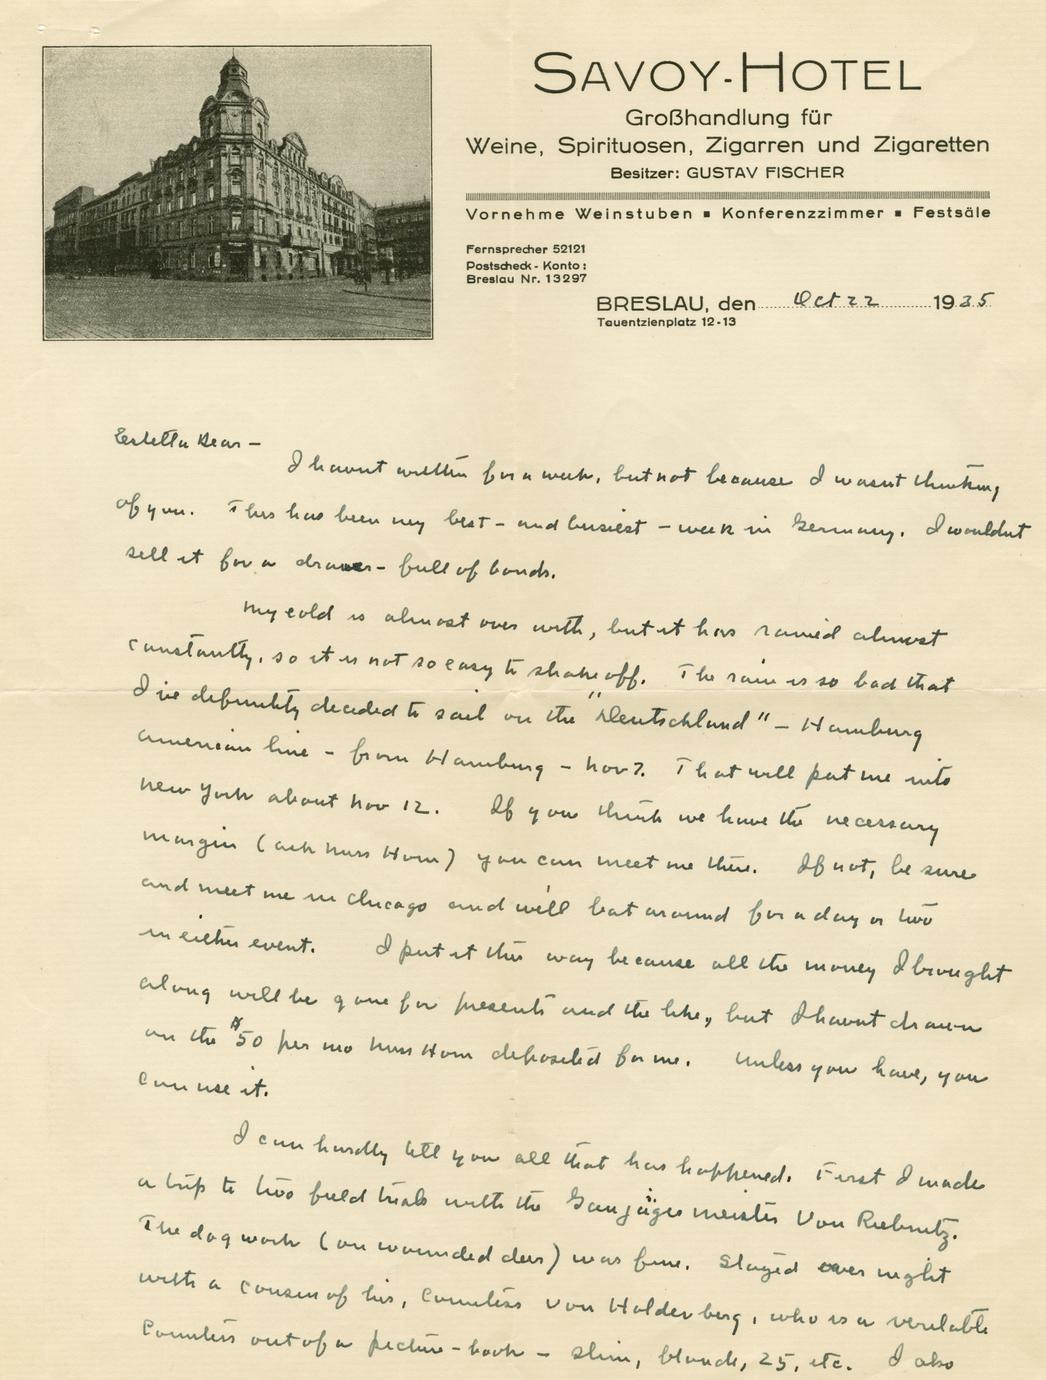 SAVOY-HOTEL
Großhandlung für
Weine, Spirituosen, Zigarren und Zigaretten
Besitzer: GUSTAV FISCHER
Vornehme Weinstuben ▪ Konferenzzimmer ▪ Festsäle
Fernsprecher 52121
Postscheck-Konto:
Breslau Nr. 13297
BRESLAU, den Oct 22 1935
Tauentzienplatz 12-13
Estella Dear —
I havnt written for a week, but not because I wasnt thinking
of you. This has been my best - and busiest - week in Germany. I wouldnt
sell it for a drawer-full of bonds.
My cold is almost over with, but it has rained almost
constantly, so it is not so easy to shake off. The rain is so bad that
I've definitely decided to sail on the "Deutschland" - Hamburg
American line - from Hamburg - Nov 7. That will put me into
New York about Nov 12. If you think we have the necessary
margin (ask Miss Horn) you can meet me there. If not, be sure
and meet me in Chicago and we'll bat around for a day or two
in either event. I put it this way because all the money I brought
along will be gone for presents and the like, but I havnt drawn
on the $50 per mo Miss Horn deposited for me. Unless you have, you
can use it.
I can hardly tell you all that has happened. First I made
a trip to two field trials with the Gaujägermeister Von Reibnitz.
The dog work (on wounded deer) was fine. Stayed over night
with a cousin of his, Countess Von Haldenberg, who is a veritable
Countess out of a picture-book - slim, blonde, 25, etc. I also